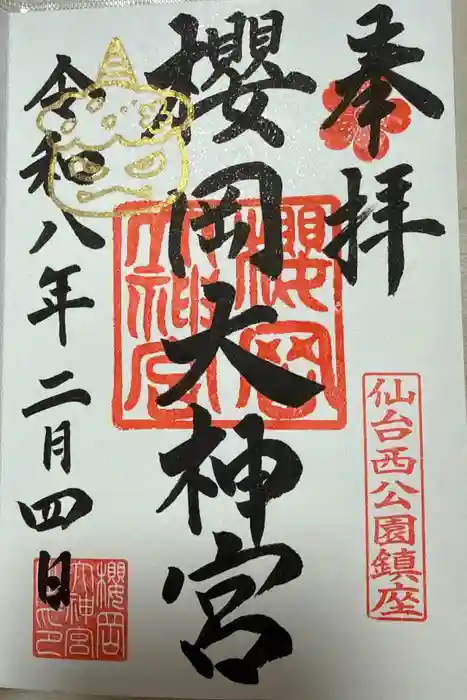 奉拝
仙台西公園鎮座
櫻岡大神宮
櫻岡
大神宮
令和八年二月四日
櫻岡
大神宮